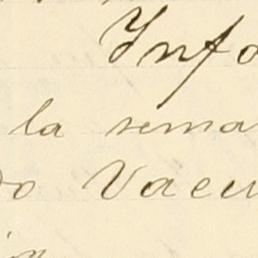 Info
la sema
do Vacu